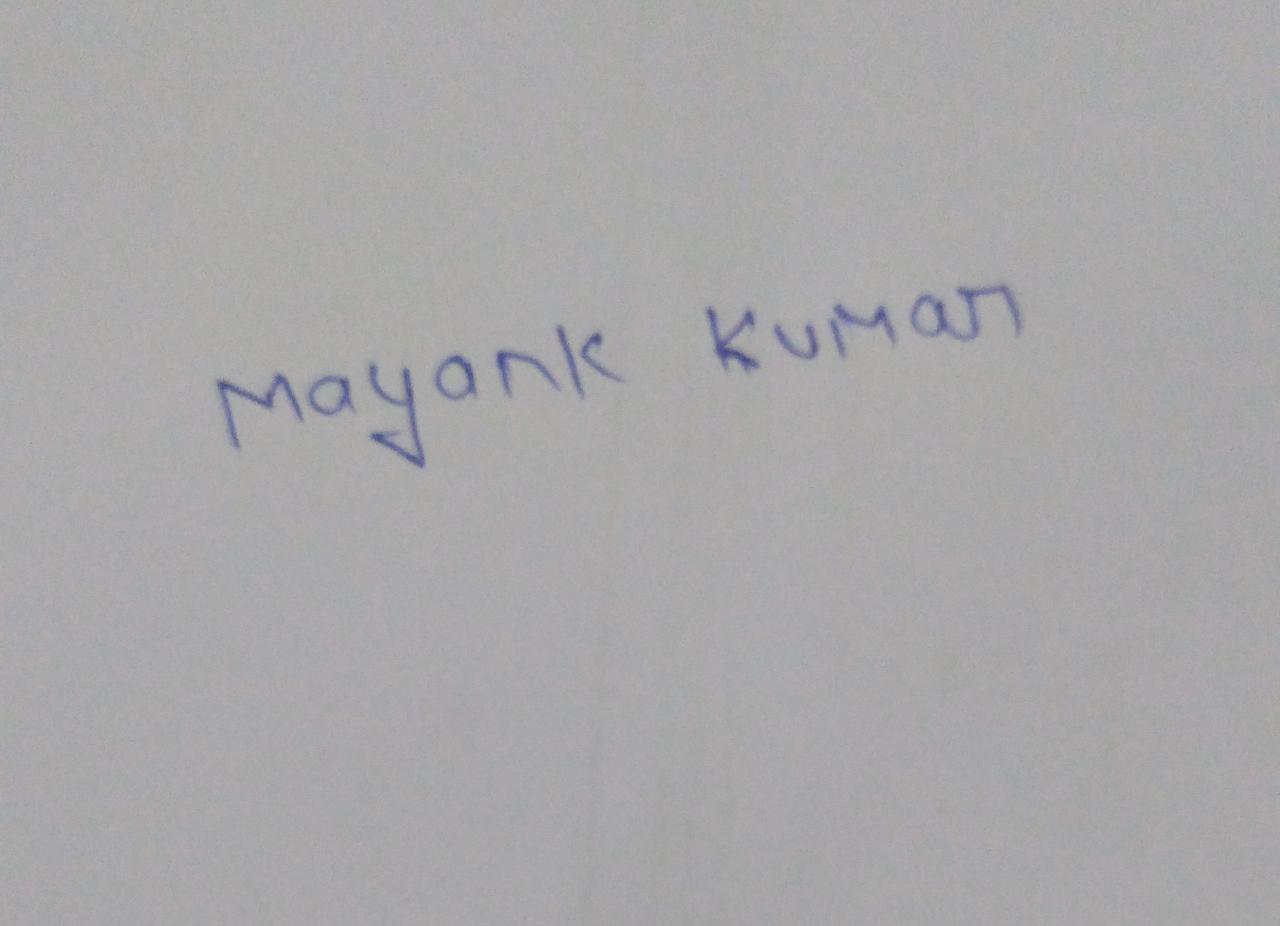 Mayank Kumar